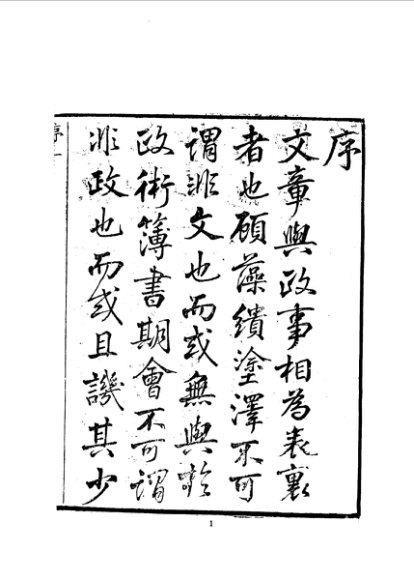 序
文章與政事相為表裏
者也顧藻繢塗澤不可
謂非文也而或無與於
政術簿書期會不可謂
非政也而或且譏其少
序一
1